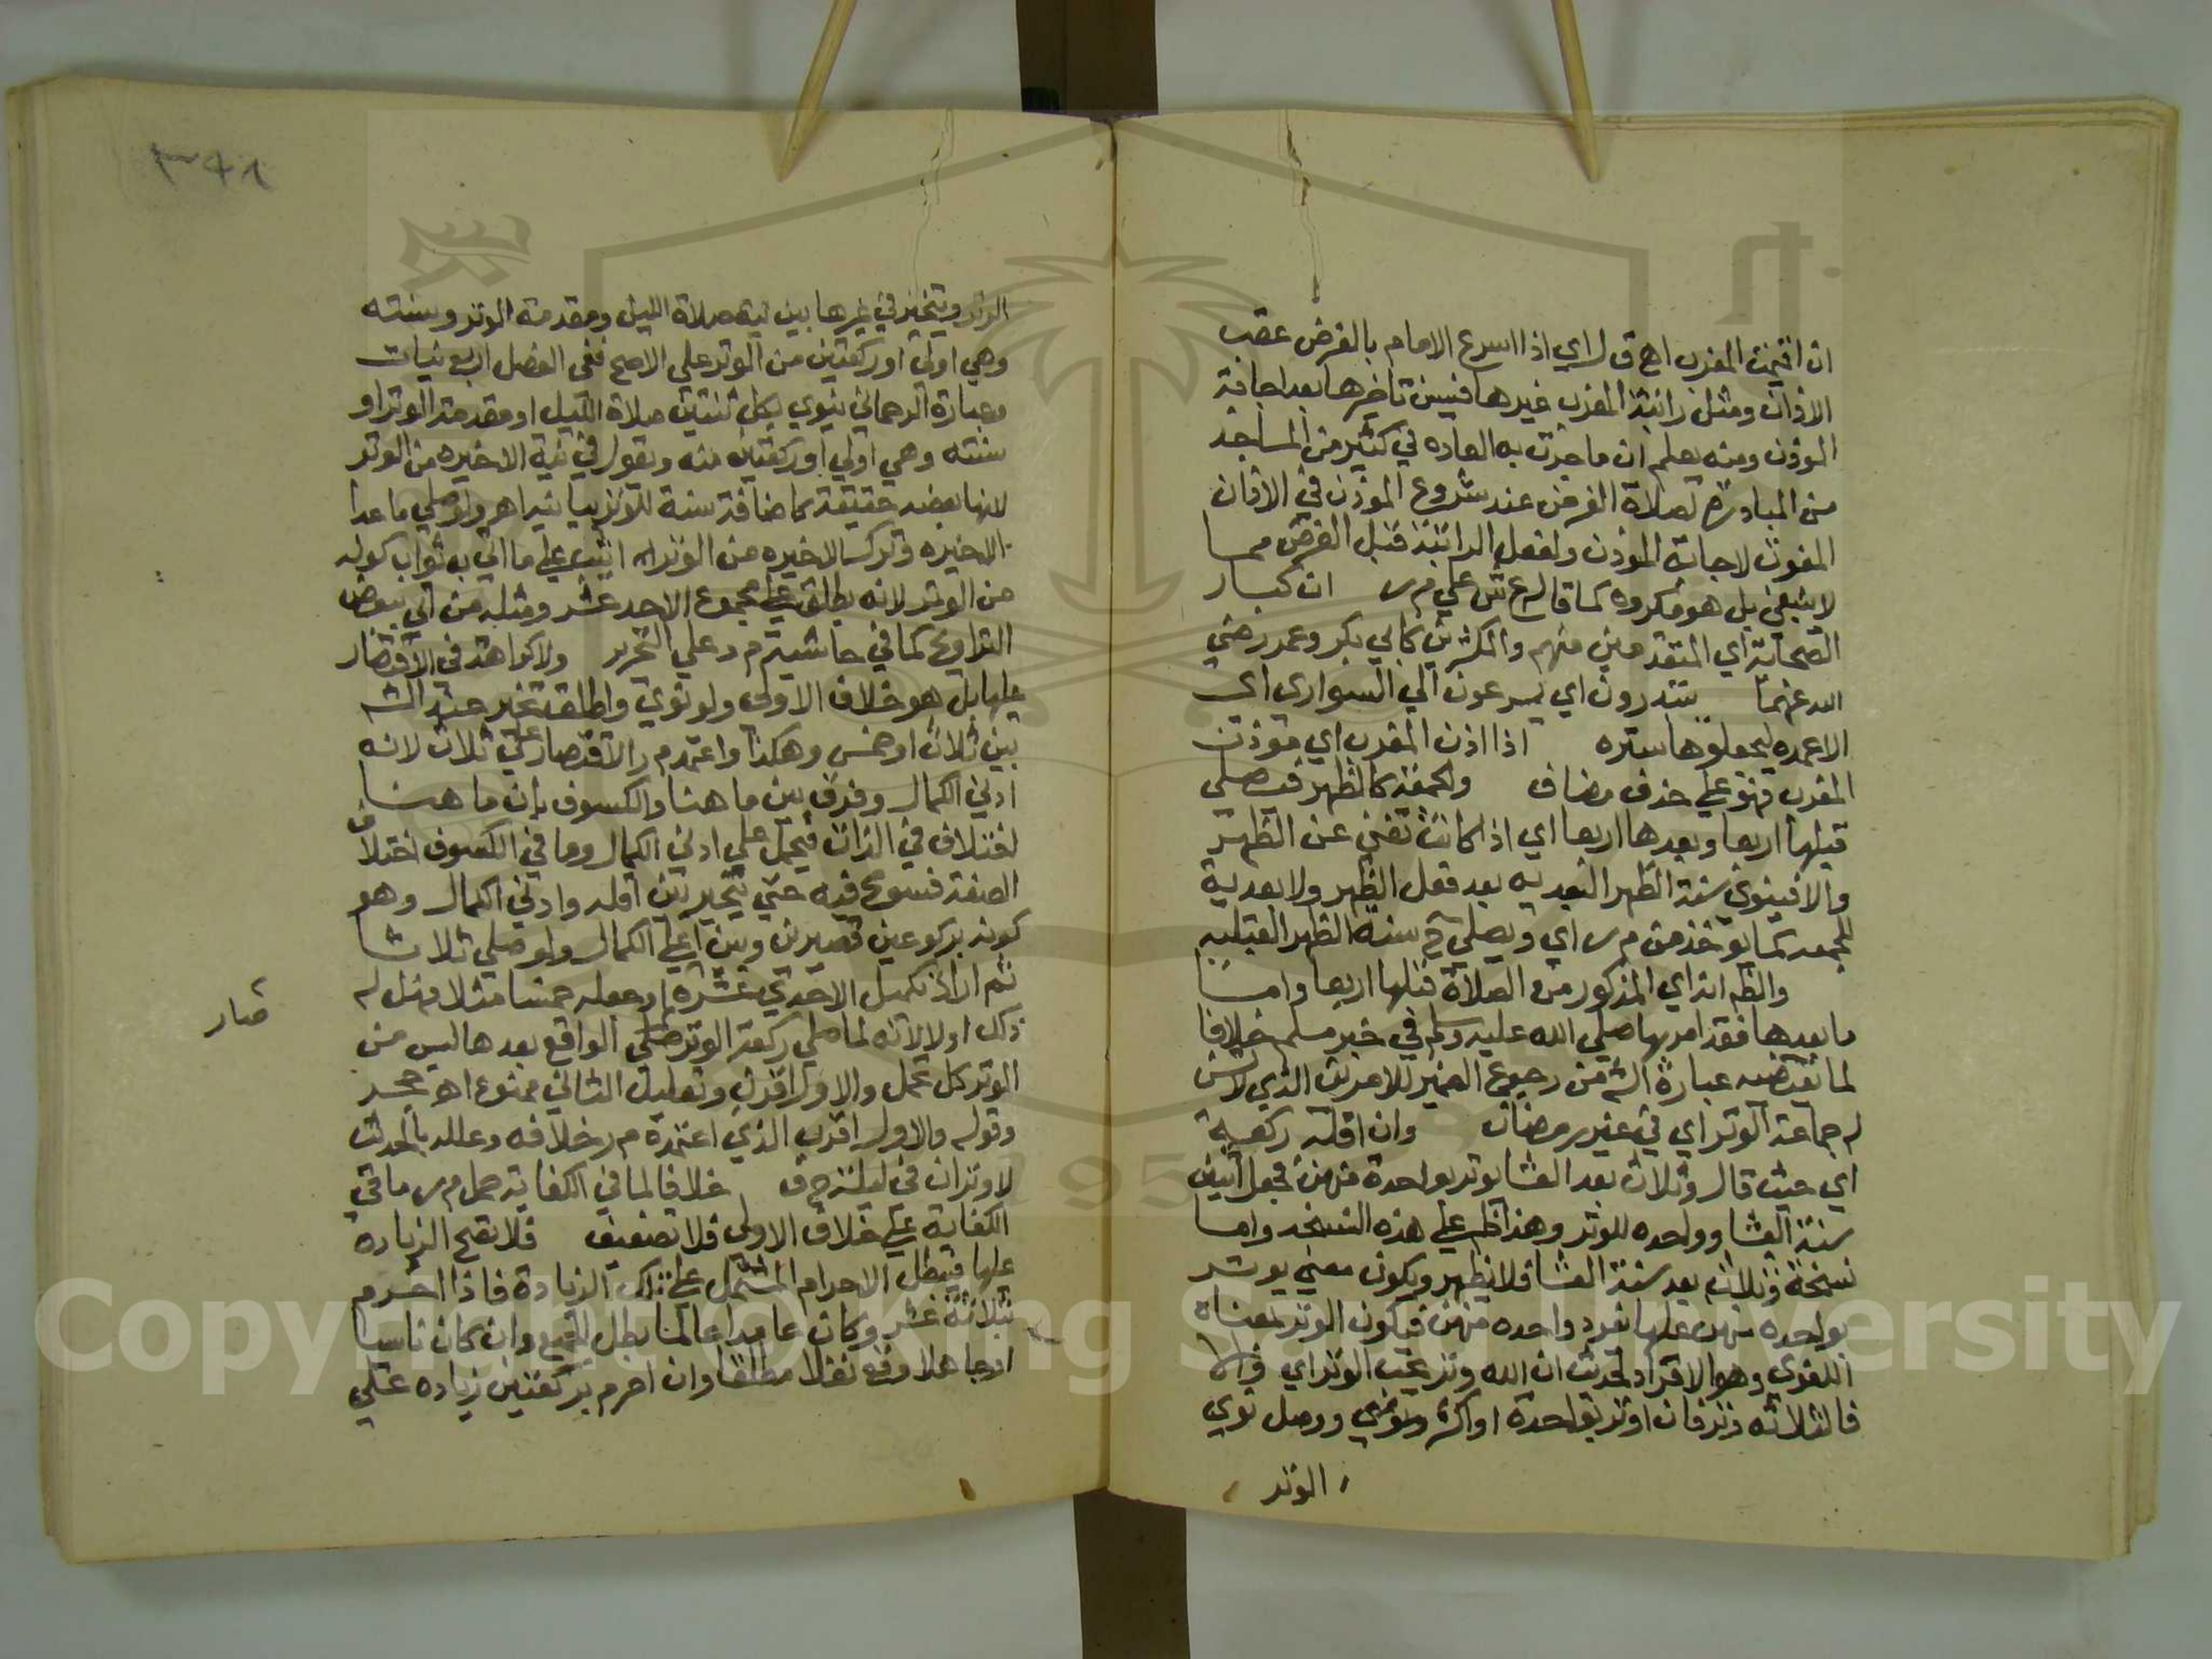 ان اقيمت المغرب اه ق ل اي اذا اسرع الامام بالفرض عقب
الاذان ومثل راتبة المغرب غيرها فيسن تاخيرها بعد اجابة
الموذن ومنه يعلم ان ما جرت به العاده في كثير من المساجد
من المبادرة لصلاة الفرض عند شروع الموذن في الاذان
المفوت لاجابة الموذن ولفعل الراتبة قبل الفرض مما
لا ينبغي بل هو مكروه كما قال ع ش علي م ر ان كبار
الصحابة اي المتقدمين منهم والمكثرين كابي بكر وعمر رضي
الله عنهما يبتدرون اي يسرعون الي السواري اي
الاعمده ليجعلوها ستره اذا اذن المغرب اي موذن
المغرب فهو علي حذف مضاف والجمعة كالظهر فيصلي
قبلها اربعا وبعدها اربعا اي اذا كانت تغني عن الظهر
والا فينوي سنة الظهر البعديه بعد فعل الظهر ولا بعدية
للجمعه كما يوخذ من م ر اي ويصلي ح سنة الظهر القبليه
والظ انه اي المذكور من الصلاة قبلها اربعا واما
ما بعدها فقد امر بها صلي الله عليه وسلم في خبر مسلم خلافا
لما تقتضيه عبارة الش من رجوع الضمير للامرين الذي لا تسن
له جماعة الوتر اي في غير رمضان وان اقله ركعة
اي حيث قال وثلاث بعد العشا يوتر بواحدة منهن فجعل اثنين
سنة العشا وواحده للوتر وهذا ظ علي هذه النسخه واما
نسخة وثلاث بعد سنة العشا فلا يظهر ويكون معني يوتر
بواحده منهن عليها نفرد واحده منهن فيكون الوتر بمعناه
اللغوي وهو الافراد لحديث ان الله وتر يحب الوتر اي والا
فالثلاثه وتر فان اوتر بواحدة او اكثر ووصل نوي
الوتر
٣٤١
الوتر ويتخير في غيرها بين نية صلاة الليل ومقدمة الوتر وسنته
وهي اولي او ركعتين من الوتر علي الاصح ففي الفصل اربع نيات
وعبارة الرحماني ينوي بكل ثنتين صلاة الليل او مقدمة الوتر او
سنته وهي اولي او ركعتين منه ويقول في نية الاخيره من الوتر
لانها بعضه حقيقة كاضافة سنة للوتر بيانية اهـ ولو صلي ما عدا
الاخيره وترك الاخيره من الوتر اثيب علي ما اتي به ثواب كونه
من الوتر لانه يطلق علي مجموع الاحد عشر ومثله من اتي ببعض
التراويح كما في حاشية م د علي التحرير ولا كراهة في الاقتصار
عليها بل هو خلاف الاولي ولو نوي واطلق تخير عند الش
بين ثلاث او خمس وهكذا واعتمد م ر الاقتصار علي ثلاث لانه
ادني الكمال وفرق بين ما هنا والكسوف بان ما هنا
اختلاف في الذات فيحمل علي ادني الكمال وما في الكسوف اختلاف
الصفة فسومح فيه حتي يتخير بين اقله وادني الكمال وهو
كونه بركوعين قصيرين وبين اعلي الكمال ولو صلي ثلاثا
ثم اراد تكميل الاحدي عشره او جعله خمسا مثلا فهل له
ذلك او لا لانه لما صلي ركعة الوتر صار الواقع بعدها ليس من
الوتر كل محتمل والاول اقرب وتعليل الثاني ممنوع اهـ حجر
وقوله والاول اقرب الذي اعتمده م ر خلافه وعلله بالحديث
لا وتران في ليلة ح ف خلافا لما في الكفاية حمل م ر ما في
الكفاية علي خلاف الاولي فلا تضعيف فلا تصح الزيادة
عليها فيبطل الاحرام المشتمل علي تلك الزيادة فاذا احرم
بثلاثة عشر وكان عامدا عالما بطل الجميع وان كان ناسيا
او جاهلا وقع نفلا مطلقا وان احرم بركعتين زيادة علي
صار